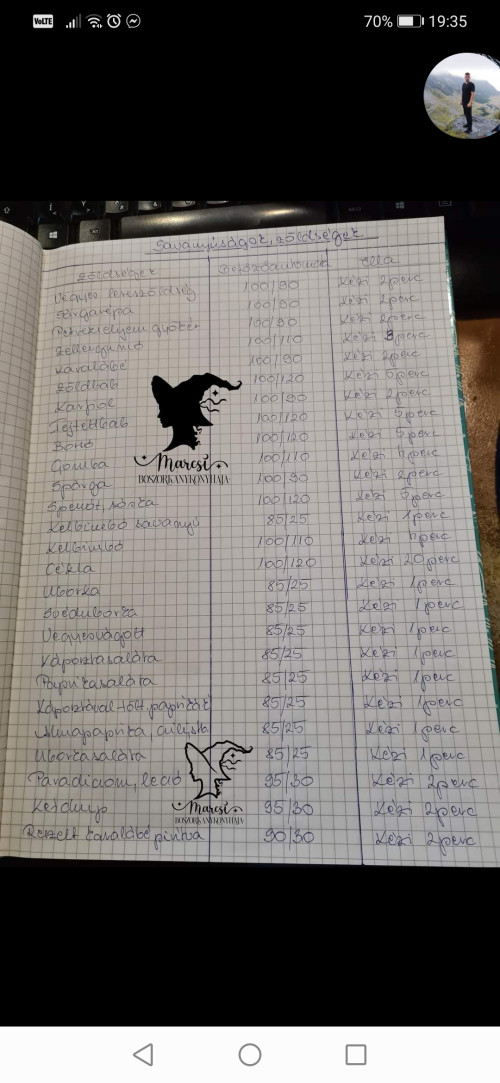 VoLTE 70% 19:35
Savanyúságok, zöldségek
Zöldségek Ella
Vegyes leveszöldség 100/90 Kézi 2perc
Sárgarépa 100/90 Kézi 2perc
Petrezselyem gyökér 100/90 Kézi 2perc
Zellergumó 100/110 Kézi 3perc
Karalábé 100/90 Kézi 2perc
Zöldbab 100/120 Kézi 5perc
Karfiol 100/90 Kézi 2perc
Fejtettbab 100/120 Kézi 5perc
Borsó 100/120 Kézi 5perc
Gomba 100/110 Kézi 4perc
Spárga 100/90 Kézi 2perc
Spenót, sóska 100/120 Kézi 5perc
Kelbimbó savanyú 85/25 Kézi 1perc
Kelbimbó 100/110 Kézi 4perc
Cékla 100/120 Kézi 20perc
Uborka 85/25 Kézi 1perc
Svéduborka 85/25 Kézi 1perc
Vegyesvágott 85/25 Kézi 1perc
Káposztasaláta 85/25 Kézi 1perc
Paprikasaláta 85/25 Kézi 1perc
Káposztával tölt. paprikák 85/25 Kézi 1perc
Almapaprika, csilisk 85/25 Kézi 1perc
Uborkasaláta 85/25 Kézi 1perc
Paradicsom, lecsó 95/30 Kézi 2perc
Ketchup 95/30 Kézi 2perc
Reszelt karalábé pirítva 90/30 Kézi 2perc
Marcsi
BOSZORKÁNYKONYHÁJA
Marcsi
BOSZORKÁNYKONYHÁJA